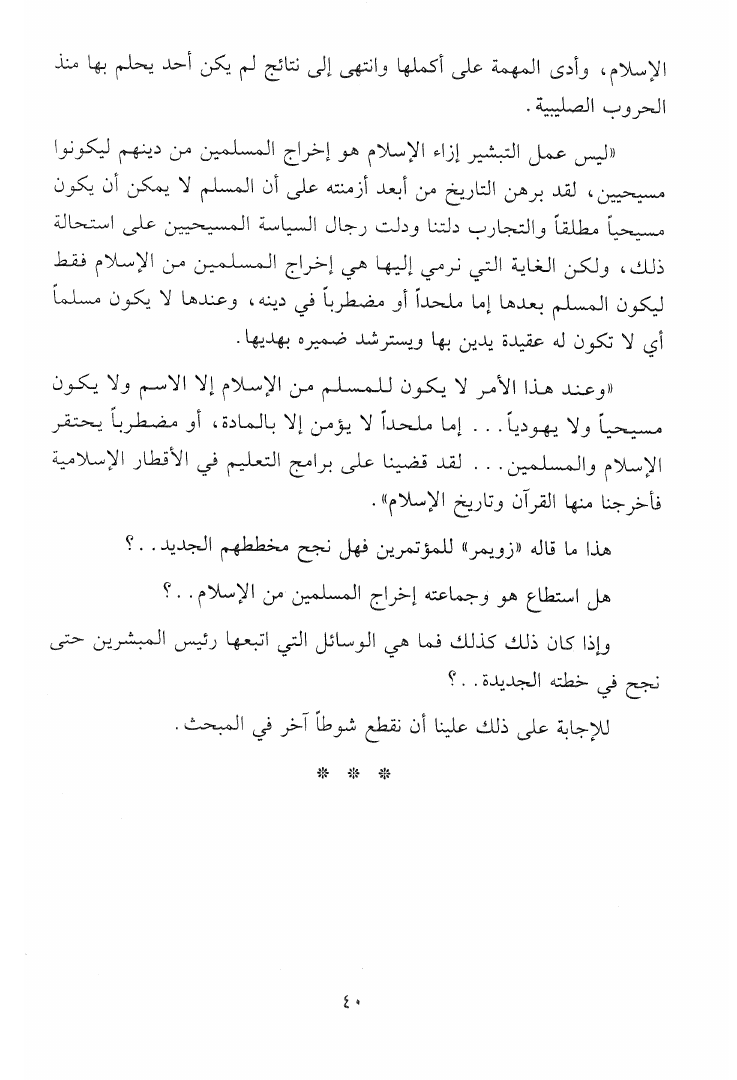 الإسلام، وأدى المهمة على أكملها وانتهى إلى نتائج لم يكن أحد يحلم بها منذ
الحروب الصليبية.
«ليس عمل التبشير إزاء الإسلام هو إخراج المسلمين من دينهم ليكونوا
مسيحيين، لقد برهن التاريخ من أبعد أزمنته على أن المسلم لا يمكن أن يكون
مسيحياً مطلقاً والتجارب دلتنا ودلت رجال السياسة المسيحيين على استحالة
ذلك، ولكن الغاية التي نرمي إليها هي إخراج المسلمين من الإسلام فقط
ليكون المسلم بعدها إما ملحداً أو مضطرباً في دينه، وعندها لا يكون مسلماً
أي لا تكون له عقيدة يدين بها ويسترشد ضميره بهديها.
«وعند هذا الأمر لا يكون للمسلم من الإسلام إلا الاسم ولا يكون
مسيحياً ولا يهودياً... إما ملحداً لا يؤمن إلا بالمادة، أو مضطرباً يحتقر
الإسلام والمسلمين... لقد قضينا على برامج التعليم في الأقطار الإسلامية
فأخرجنا منها القرآن وتاريخ الإسلام».
هذا ما قاله «زويمر» للمؤتمرين فهل نجح مخططهم الجديد..؟
هل استطاع هو وجماعته إخراج المسلمين من الإسلام..؟
وإذا كان ذلك كذلك فما هي الوسائل التي اتبعها رئيس المبشرين حتى
نجح في خطته الجديدة..؟
للإجابة على ذلك علينا أن نقطع شوطاً آخر في المبحث.
* * *
٤٠